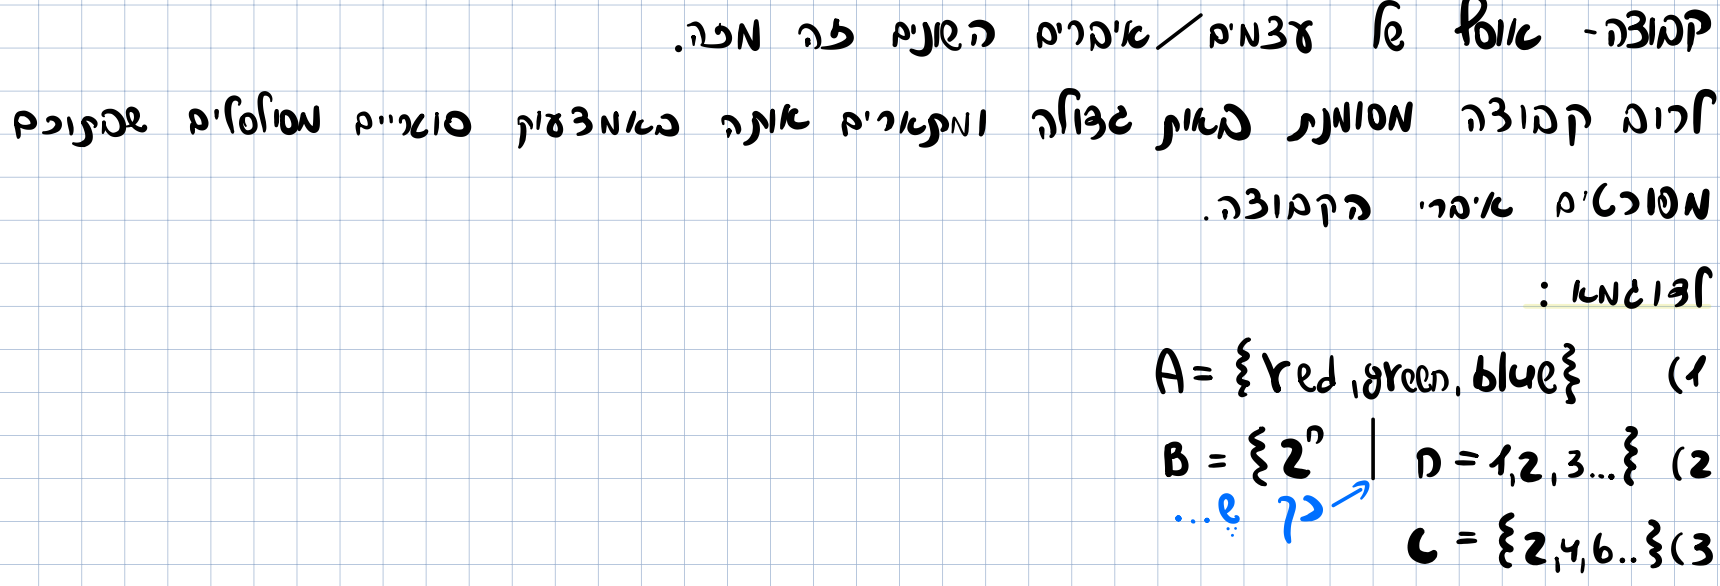 קבוצה- אוסף של עצמים/איברים השונים זה מזה.
לרוב קבוצה מסומנת באות גדולה ומתארים אותה באמצעות סוגריים מסולסלים שבתוכם
מפורטים איברי הקבוצה.
לדוגמא:
1) A = {red, green, blue}
2) B = {2ⁿ | n = 1, 2, 3...}
כך ש...
3) C = {2, 4, 6..}